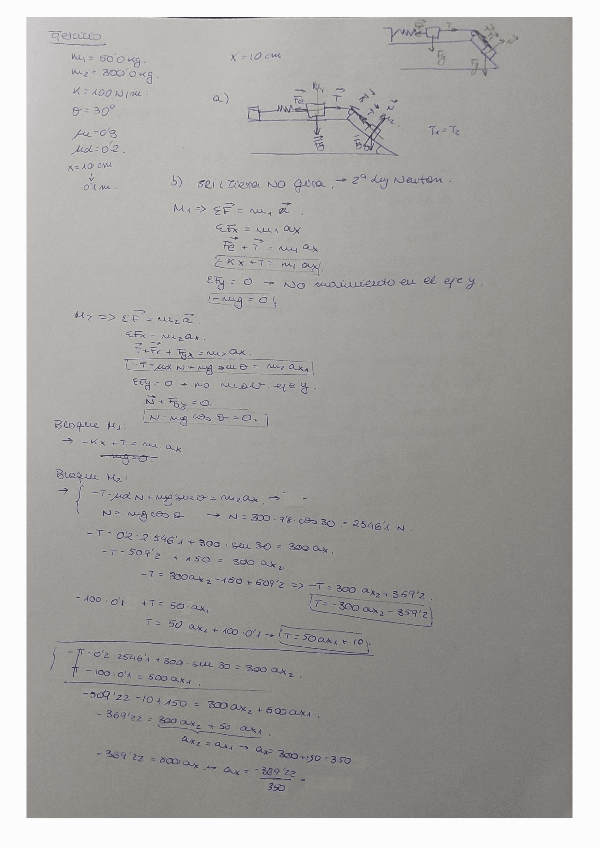 Ejercicio
m₁ = 50'0 kg.
m₂ = 300'0 kg.
x = 10 cm
K = 100 N/m.
θ = 30º
μ = 0'3
μd = 0'2.
x = 10 cm
↓
0'1 m.
a)
Fe T N
T₁ = T₂
b) polea no gira, → 2ª ley Newton.
M₁ => ΣF = m₁ a.
ΣFx = m₁ ax
Fe + T = m₁ ax
-Kx + T = m₁ ax
ΣFy = 0 → No movimiento en el eje y.
-mg = 0
M₂ => ΣF = m₂ a.
ΣFx = m₂ ax.
T + Fr + Fgx = m₂ ax.
-T - μd N + mg sen θ = m₂ ax
ΣFy = 0 → no mov. eje y.
N + Fgy = 0
N - mg cos θ = 0.
Bloque M₁
→ -Kx + T = m₁ ax
Bloque M₂:
→ { -T - μd N + mg sen θ = m₂ ax. →
N = mg cos θ → N = 300 · 9'8 · cos 30 = 2546'1 N.
-T - 0'2 · 2546'1 + 300 · sen 30 = 300 ax.
-T - 509'2 + 150 = 300 ax₂
-T = 300 ax₂ - 150 + 509'2 => -T = 300 ax₂ + 359'2.
T = -300 ax₂ - 359'2
-100 · 0'1 + T = 50 · ax₁
T = 50 ax₁ + 100 · 0'1 → T = 50 ax₁ + 10.
-T - 0'2 · 2546'1 + 300 · sen 30 = 300 ax₂.
T - 100 · 0'1 = 500 ax₁.
-509'22 - 10 + 150 = 300 ax₂ + 500 ax₁.
-369'22 = 300 ax₂ + 50 ax₁.
ax₂ = ax₁ → ax = 300 + 50 = 350
-369'22 = ax → ax = -369'22 / 350 =